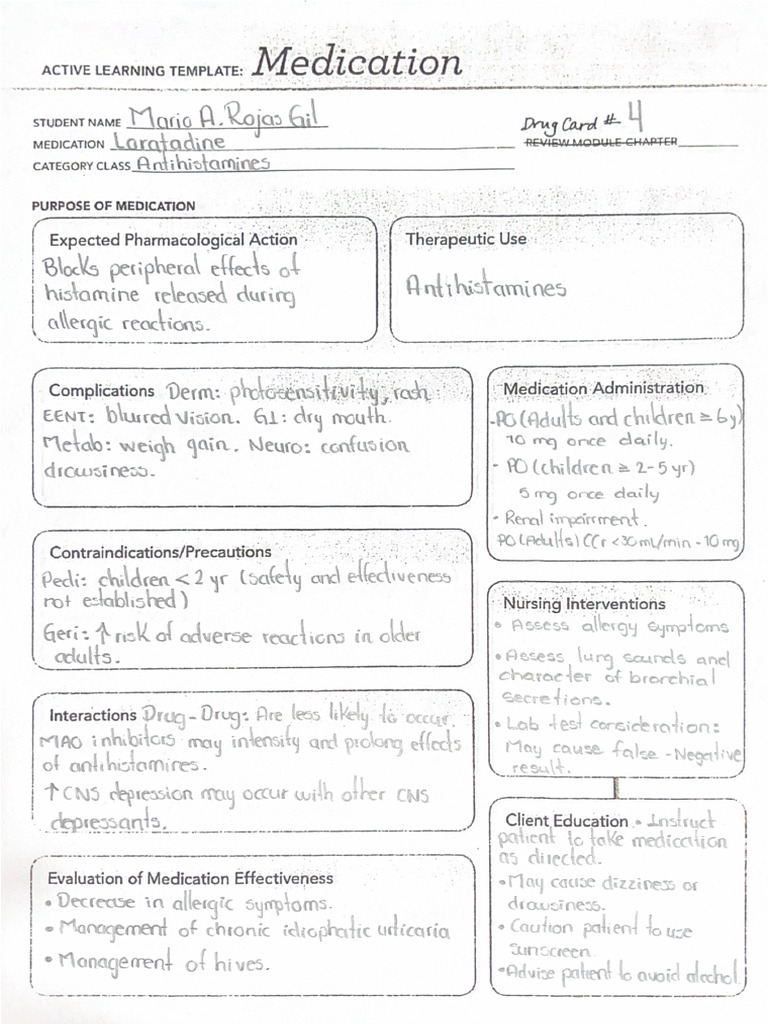 ACTIVE LEARNING TEMPLATE: Medication
STUDENT NAME Mario A. Rojas Gil
Drug Card # 4
MEDICATION Loratadine
REVIEW MODULE CHAPTER
CATEGORY CLASS Antihistamines
PURPOSE OF MEDICATION
Expected Pharmacological Action
Blocks peripheral effects of
histamine released during
allergic reactions.
Therapeutic Use
Antihistamines
Complications Derm: photosensitivity, rash
EENT: blurred vision. GI: dry mouth.
Metab: weigh gain. Neuro: confusion
drowsiness.
Medication Administration
-PO (Adults and children ≥ 6y)
10 mg once daily.
- PO (children ≥ 2-5 yr)
5 mg once daily
- Renal impairment.
PO (Adults) CCr <30 mL/min - 10 mg
Contraindications/Precautions
Pedi: children < 2 yr (safety and effectiveness
not established)
Geri: ↑ risk of adverse reactions in older
adults.
Nursing Interventions
• Assess allergy symptoms
• Assess lung sounds and
character of bronchial
secretions.
• Lab test consideration:
May cause false-Negative
result.
Interactions Drug-Drug: Are less likely to occur.
MAO inhibitors may intensity and prolong effects
of antihistamines.
↑ CNS depression may occur with other CNS
depressants.
Client Education • Instruct
patient to take medication
as directed.
• May cause dizziness or
drowsiness.
• Caution patient to use
sunscreen.
• Advise patient to avoid alochol.
Evaluation of Medication Effectiveness
• Decrease in allergic symptoms.
• Management of chronic idiophatic urticaria
• Management of hives.